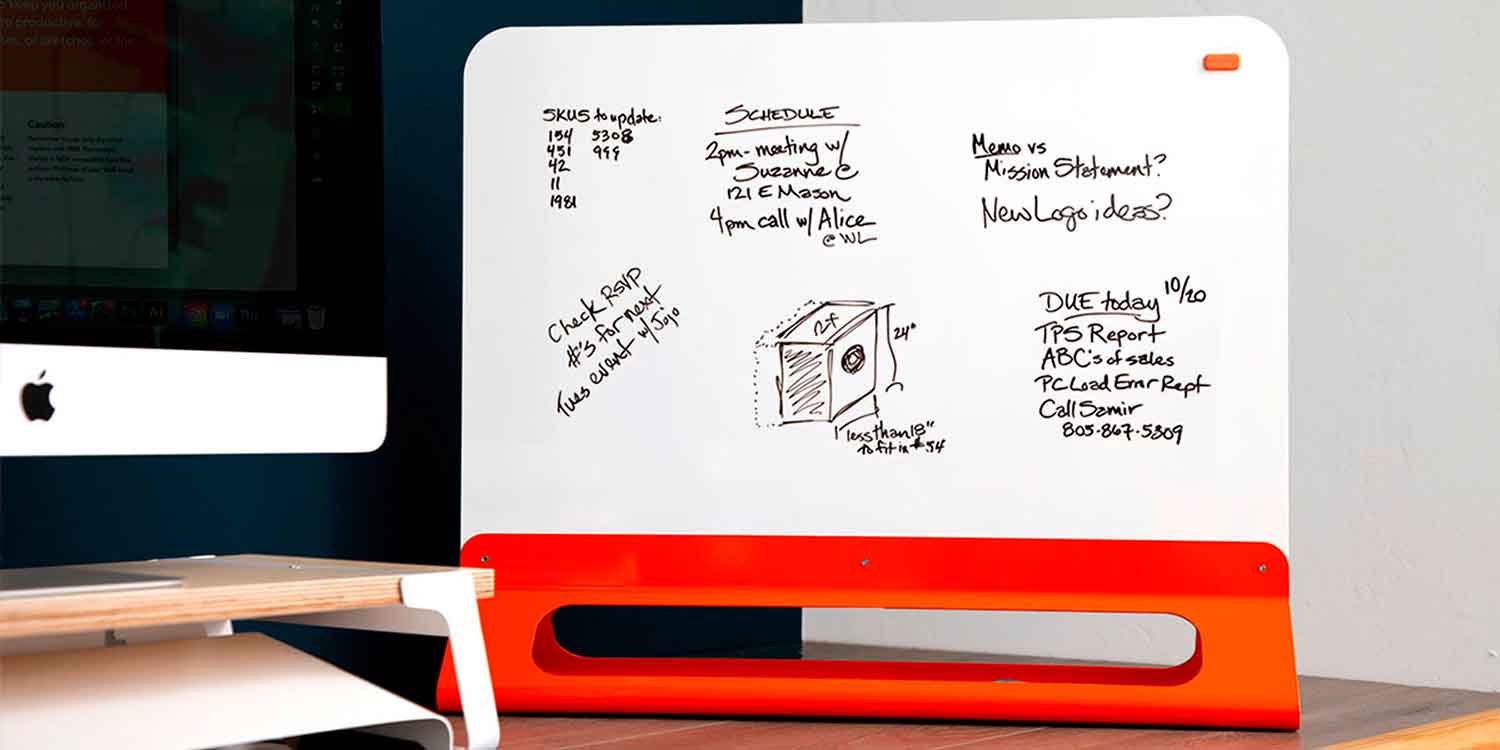 keep you organized
productive, for
or sketches, or the
Caution
SKUS to update:
154 5308
451 999
42
11
1981
SCHEDULE
2pm - meeting w/
Suzanne @
121 E Mason
4pm call w/ Alice
@ WL
Memo vs
Mission Statement?
New Logo ideas?
Check RSVP
#'s for next
Tues event w/ Jojo
24"
less than 18"
to fit in #54
DUE today 10/20
TPS Report
ABC's of sales
PC Load Error Rept
Call Samir
805-867-5309